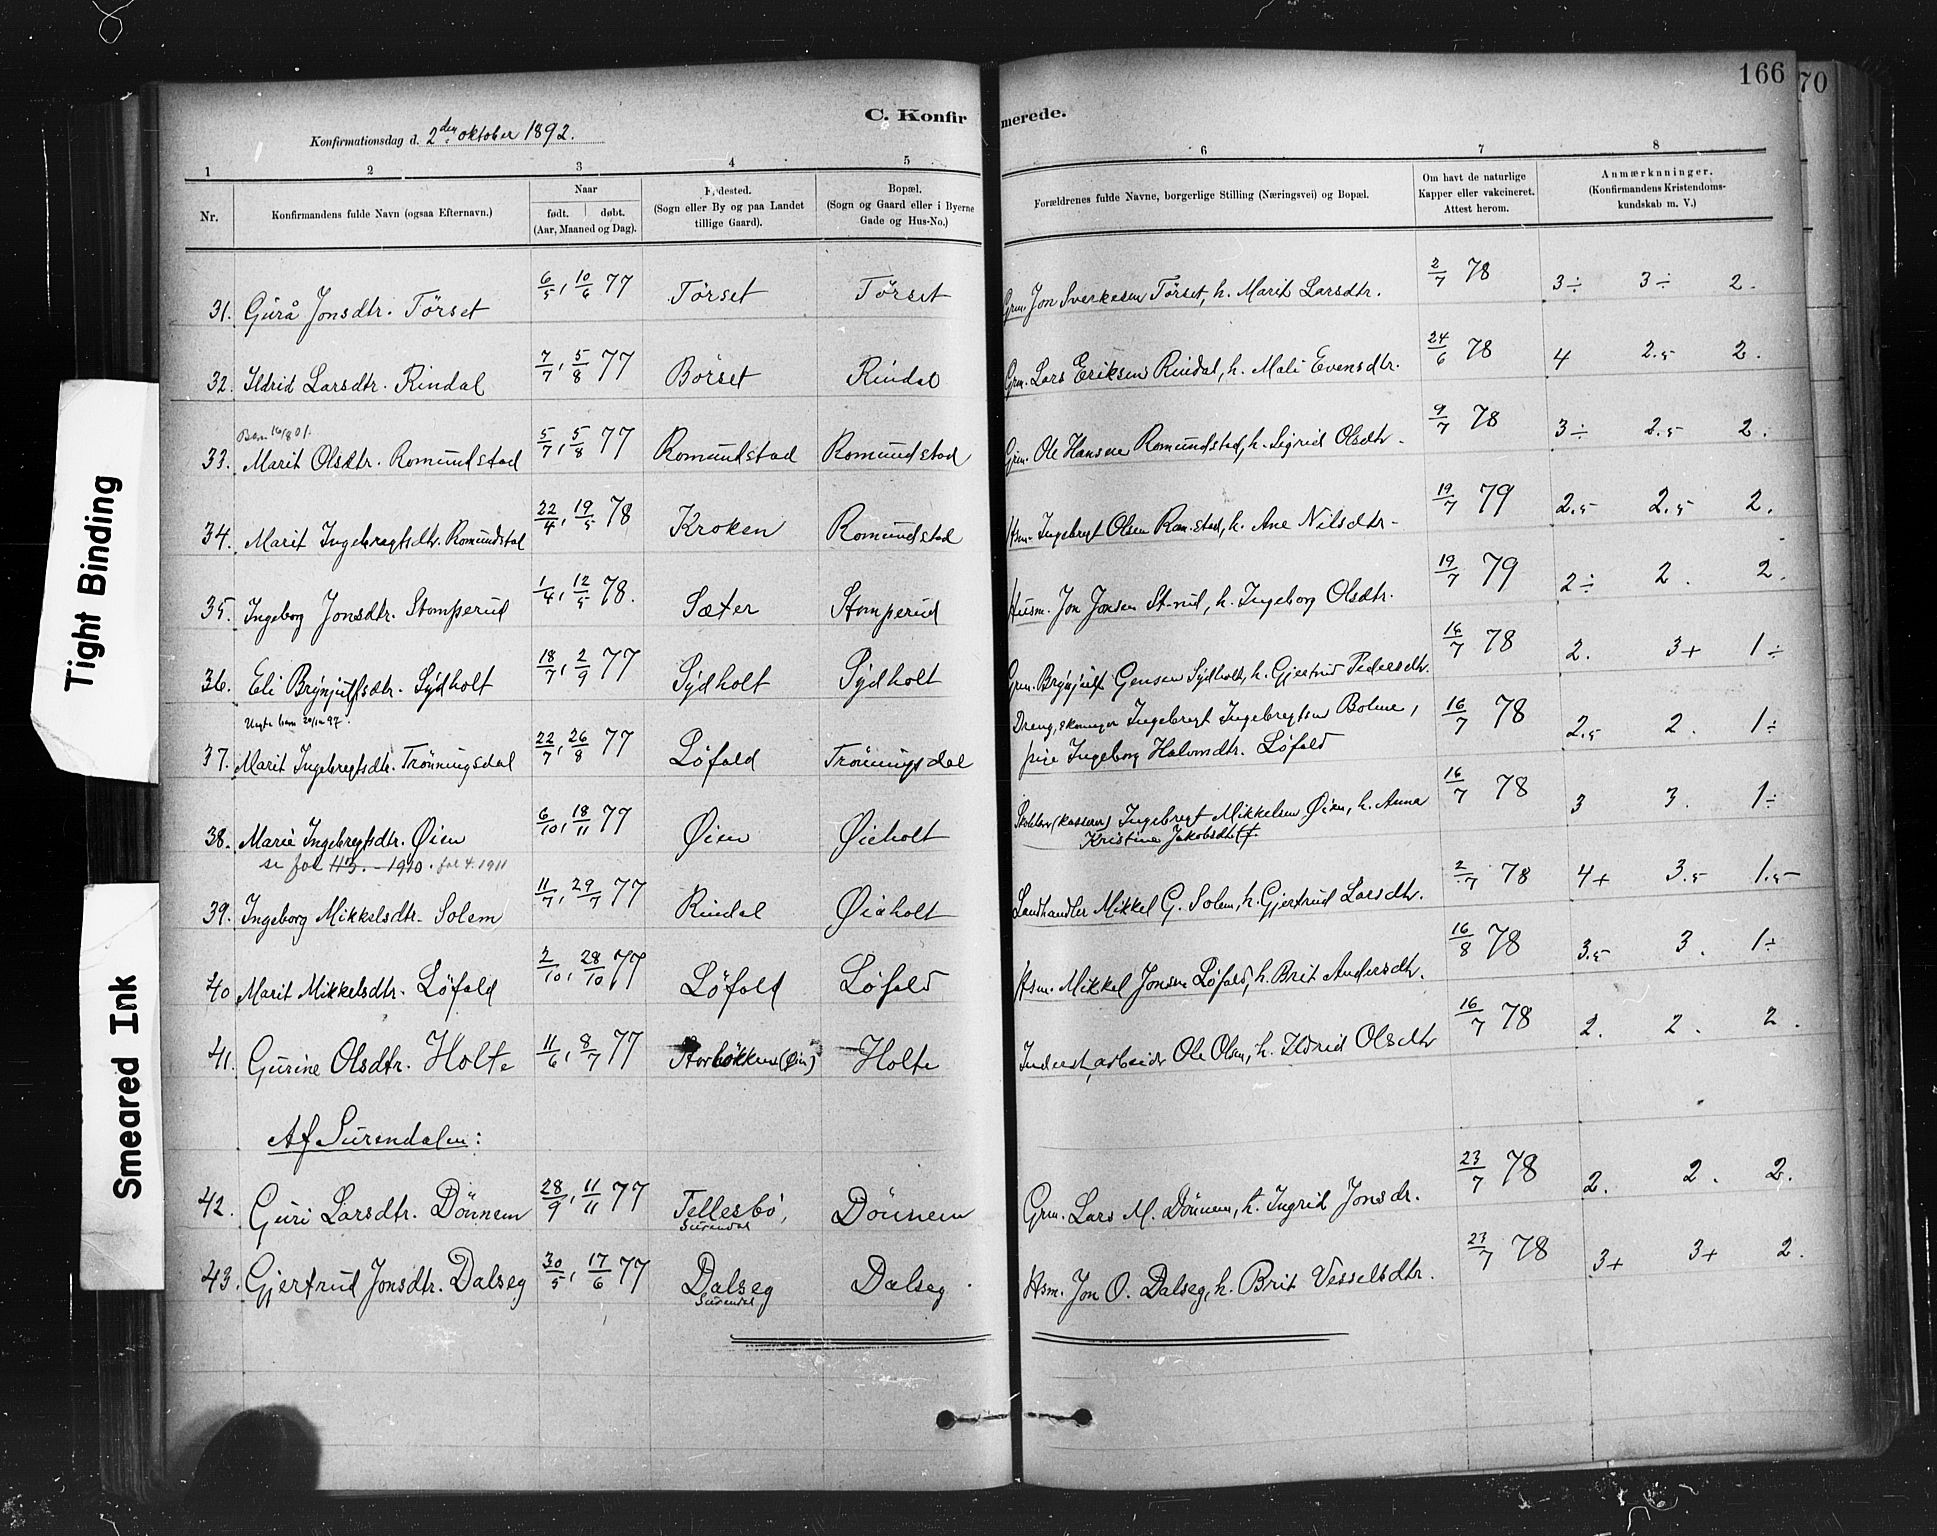 166
70
C. Konfirmerede.
Konfirmationsdag d. 2den oktober 1892.
1 2 3 4 5 6 7 8
Nr.
Konfirmandens fulde Navn (ogsaa Efternavn).
Naar født. | døbt. (Aar, Maaned og Dag).
Fødested. (Sogn eller By og paa Landet tillige Gaard).
Bopæl. (Sogn og Gaard eller i Byerne Gade og Hus-No.)
Forældrenes fulde Navne, borgerlige Stilling (Næringsvei) og Bopæl.
Om havt de naturlige Kapper eller vakcineret. Attest herom.
Anmærkninger. (Konfirmandens Kristendomskundskab m. V.)
31. Gurå Jonsdtr. Tørset 6/5, 10/6 77 Tørset Tørset Grm. Jon Sverkesen Tørset, h. Marit Larsdtr. 2/7 78 3÷ 3÷ 2.
32. Ildrid Larsdtr. Rindal 7/7, 5/8 77 Börset Rindal Grm. Lars Eriksen Rindal, h. Mali Evensdtr. 24/6 78 4 2.5 2.
33. Marit Olsdtr. Romundstad 5/7, 5/8 77 Romundstad Romundstad Grm. Ole Hansen Romundstad, h. Sigrid Olsdtr. 9/7 78 3÷ 2.5 2.
34. Marit Ingebregtsdtr. Romundstad 22/4, 19/5 78 Kroken Romundstad Hsm. Ingebregt Olsen Rom.stad, h. Ane Nilsdtr. 19/7 79 2.5 2.5 2.
35. Ingeborg Jonsdtr. Stomperud 1/4, 12/5 78. Sæter Stomperud Husm. Jon Jonsen St-rud, h. Ingeborg Olsdtr. 19/7 79 2÷ 2. 2.
36. Eli Brynjulfsdtr. Sydholt 18/7, 2/9 77 Sydholt Sydholt Grm. Brynjulf Gensen Sydholt, h. Gjertrud Pedersdtr. 16/7 78 2. 3+ 1÷
37. Marit Ingebregtsdtr. Trönningsdal 22/7, 26/8 77 Löfald Trönningsdal Dreng, Ingebregt Ingebregtsen Bolme,
pige Ingeborg Halvordtr. Løfald 16/7 78 2.5 2. 1÷
38. Marie Ingebregtsdtr. Øien 6/10, 18/11 77 Øien Øieholt (Kasserer) Ingebregt Mikkelsen Øien, h. Anna
Kristine Jakobsdtr. 16/7 78 3 3. 1÷
se fol 113. - 1910. fol 4. 1911
39. Ingeborg Mikkelsdtr. Solem 11/7, 29/7 77 Rindal Øieholt Landhandler Mikkel G. Solem, h. Gjertrud Larsdtr. 2/7 78 4+ 3.5 1.5-
40 Marit Mikkelsdtr. Löfald 2/10, 28/10 77 Löfald Löfald Hsm. Mikkel Jonsen Løfald, h. Brit Andersdtr. 16/8 78 3.5 3. 1÷
41. Gurine Olsdtr. Holte 11/6, 8/7 77 Storløkken (Øien) Holte Inderst, arbeider Ole Olsen, h. Ildrid Olsdtr 16/7 78 2. 2. 2.
Af Surendalen:
42. Guri Larsdtr. Dönnem 28/9, 11/11 77 Tellesbö, Surendal Dönnem Grm. Lars M. Dönnem, h. Ingrid Jonsdr. 23/7 78 2. 2. 2.
43. Gjertrud Jonsdtr. Dalseg 30/5, 17/6 77 Dalseg Surendal Dalseg. Hsm. Jon O. Dalseg, h. Brit Vesselsdtr. 23/7 78 3+ 3+ 2.
Tight Binding
Smeared Ink